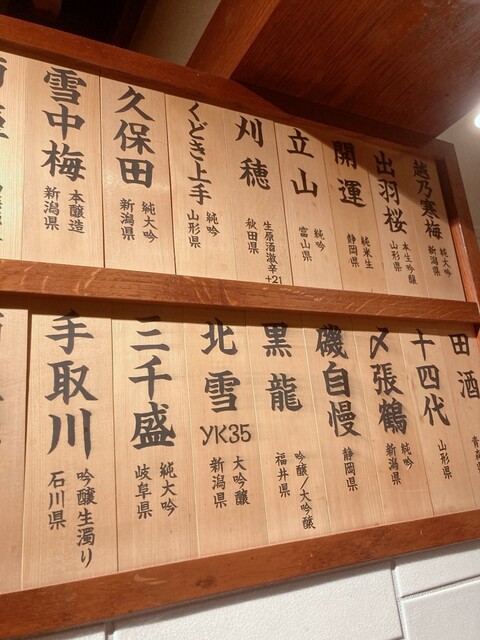 越乃寒梅
純大吟
新潟県
出羽桜
本生吟醸
山形県
開運
純米生
静岡県
立山
純吟
富山県
刈穂
生原酒激辛+21
秋田県
くどき上手
純吟
山形県
久保田
純大吟
新潟県
雪中梅
本醸造
新潟県
田酒
十四代
山形県
〆張鶴
純吟
新潟県
磯自慢
静岡県
黒龍
吟醸/大吟醸
福井県
北雪
YK35
大吟醸
新潟県
三千盛
純大吟
岐阜県
手取川
吟醸生濁り
石川県